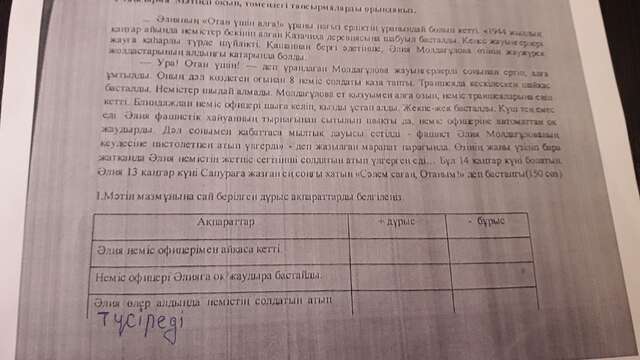 Мәтінді оқып, төмендегі тапсырмаларды орындаңыз.
... Әлияның «Отан үшін алға!» ұраны нағыз ерліктің ұранындай болып кетті. «1944 жылдың
қаңтар айында немістер бекініп алған Казачиха деревнясына шабуыл басталды. Кеңес жауынгерлері
жауға қаһарлы түрде шүйлікті. Қашаннан бергі әдетінше, Әлия Молдағұлова өзінің жаужүрек
жолдастарының алдыңғы қатарында болды.
— Ура! Отан үшін! — деп ұрандаған Молдағұлова жауынгерлерді соңынан ертіп, алға
ұмтылды. Оның дәл көздеген оғынан 8 неміс солдаты қаза тапты. Траншеяда кескілескен шайқас
басталды. Немістер шыдай алмады. Молдағұлова ет қызуымен алға озып, неміс траншеяларына еніп
кетті. Блиндаждан неміс офицері шыға келіп, қызды ұстап алды. Жекпе-жек басталды. Күш тең емес
еді. Әлия фашистік хайуанның тырнағынан сытылып шықты да, неміс офицеріне автоматтан оқ
жаудырды. Дәл сонымен қабаттаса мылтық дауысы естілді - фашист Әлия Молдағұлованың
кеудесіне пистолетпен атып үлгерді» - деп жазылған марапат парағында. Өзінің жаны үзіліп бара
жатқанда Әлия немістің жетпіс сегізінші солдатын атып үлгерген еді... Бұл 14 қаңтар күні болатын.
Әлия 13 қаңтар күні Сапураға жазған ең соңғы хатын «Сәлем саған, Отаным!» деп бастапты(150 сөз)
1.Мәтін мазмұнына сай берілген дұрыс ақпараттарды белгіленіз.
Ақпараттар + дұрыс - бұрыс
Әлия неміс офицерімен айқаса кетті.
Неміс офицері Әлияға оқ жаудыра бастайды.
Әлия өлер алдында немістің солдатын атып
түсіреді